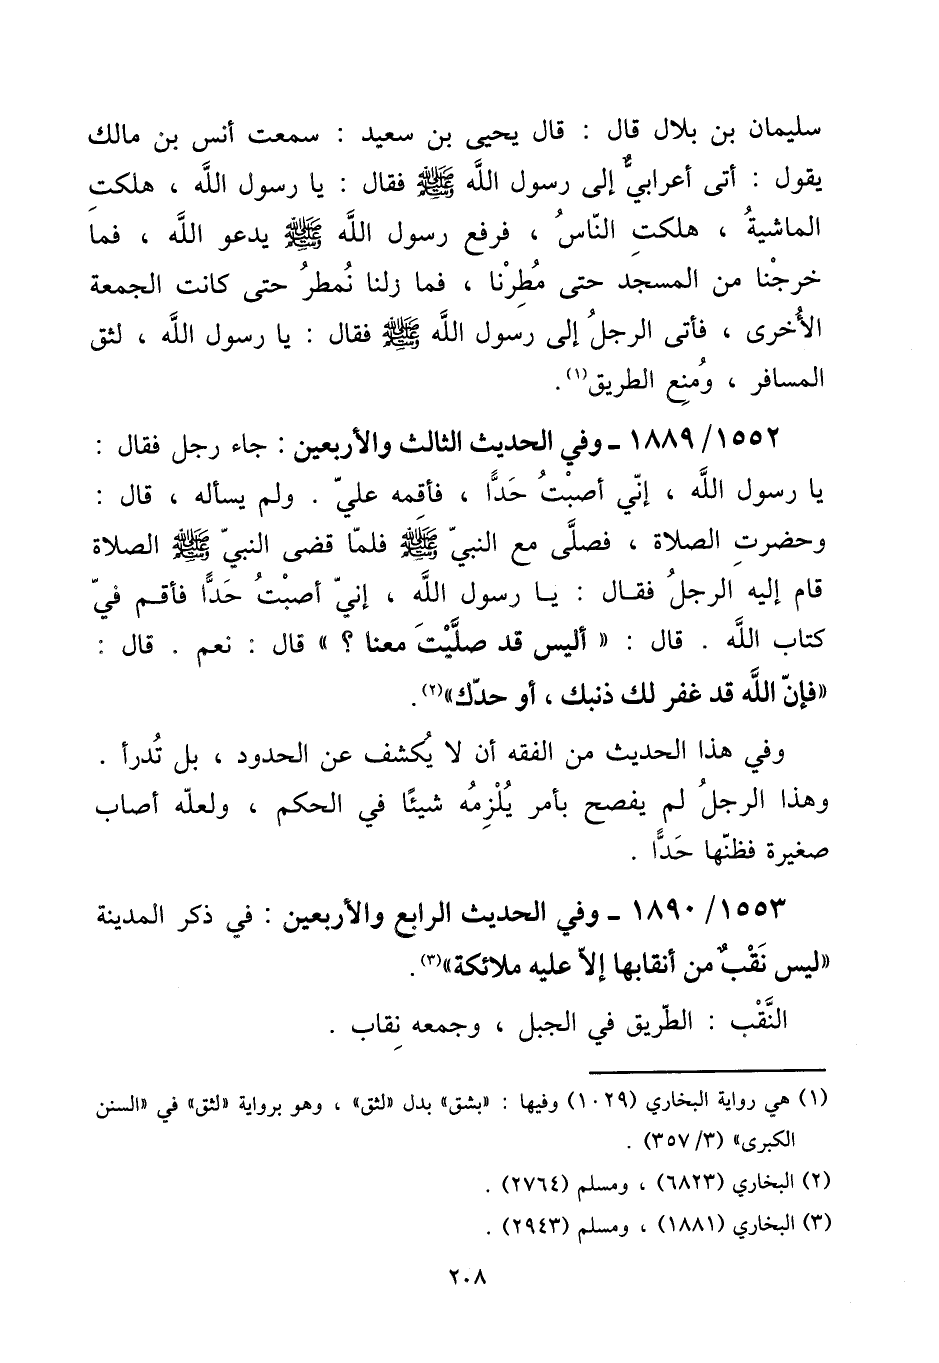 سليمان بن بلال قال : قال يحيى بن سعيد : سمعت أنس بن مالك
يقول : أتى أعرابيٌّ إلى رسول اللَّه ﷺ فقال : يا رسول اللَّه ، هلكتِ
الماشيةُ ، هلكتِ النّاسُ ، فرفع رسول اللَّه ﷺ يدعو اللَّه ، فما
خرجْنا من المسجد حتى مُطِرْنا ، فما زلنا نُمطرُ حتى كانت الجمعة
الأُخرى ، فأتى الرجلُ إلى رسول اللَّه ﷺ فقال : يا رسول اللَّه ، لثق
المسافر ، ومُنِع الطريق(١).
١٥٥٢/ ١٨٨٩ ـ وفي الحديث الثالث والأربعين : جاء رجل فقال :
يا رسول اللَّه ، إنّي أصبْتُ حَدًّا ، فأقِمه عليّ . ولم يسأله ، قال :
وحضرتِ الصلاة ، فصلَّى مع النبيّ ﷺ فلمّا قضى النبيّ ﷺ الصلاة
قام إليه الرجلُ فقال : يا رسول اللَّه ، إنيّ أصبْتُ حَدًّا فأقم فيّ
كتاب اللَّه . قال : « أليس قد صلَّيْتَ معنا ؟ » قال : نعم . قال :
«فإنّ اللَّه قد غفر لك ذنبك ، أو حدّك»(٢).
وفي هذا الحديث من الفقه أن لا يُكشف عن الحدود ، بل تُدرأ .
وهذا الرجلُ لم يفصح بأمر يُلْزِمُه شيئًا في الحكم ، ولعلّه أصاب
صغيرة فظنّها حَدًّا .
١٥٥٣/ ١٨٩٠ ـ وفي الحديث الرابع والأربعين : في ذكر المدينة
«ليس نَقْبٌ من أنقابها إلاّ عليه ملائكة»(٣).
النَّقْب : الطّريق في الجبل ، وجمعه نِقاب .
(١) هي رواية البخاري (١٠٢٩) وفيها : «بشق» بدل «لثق» ، وهو برواية «لثق» في «السنن
الكبرى» (٣/ ٣٥٧) .
(٢) البخاري (٦٨٢٣) ، ومسلم (٢٧٦٤) .
(٣) البخاري (١٨٨١) ، ومسلم (٢٩٤٣) .
٢٠٨